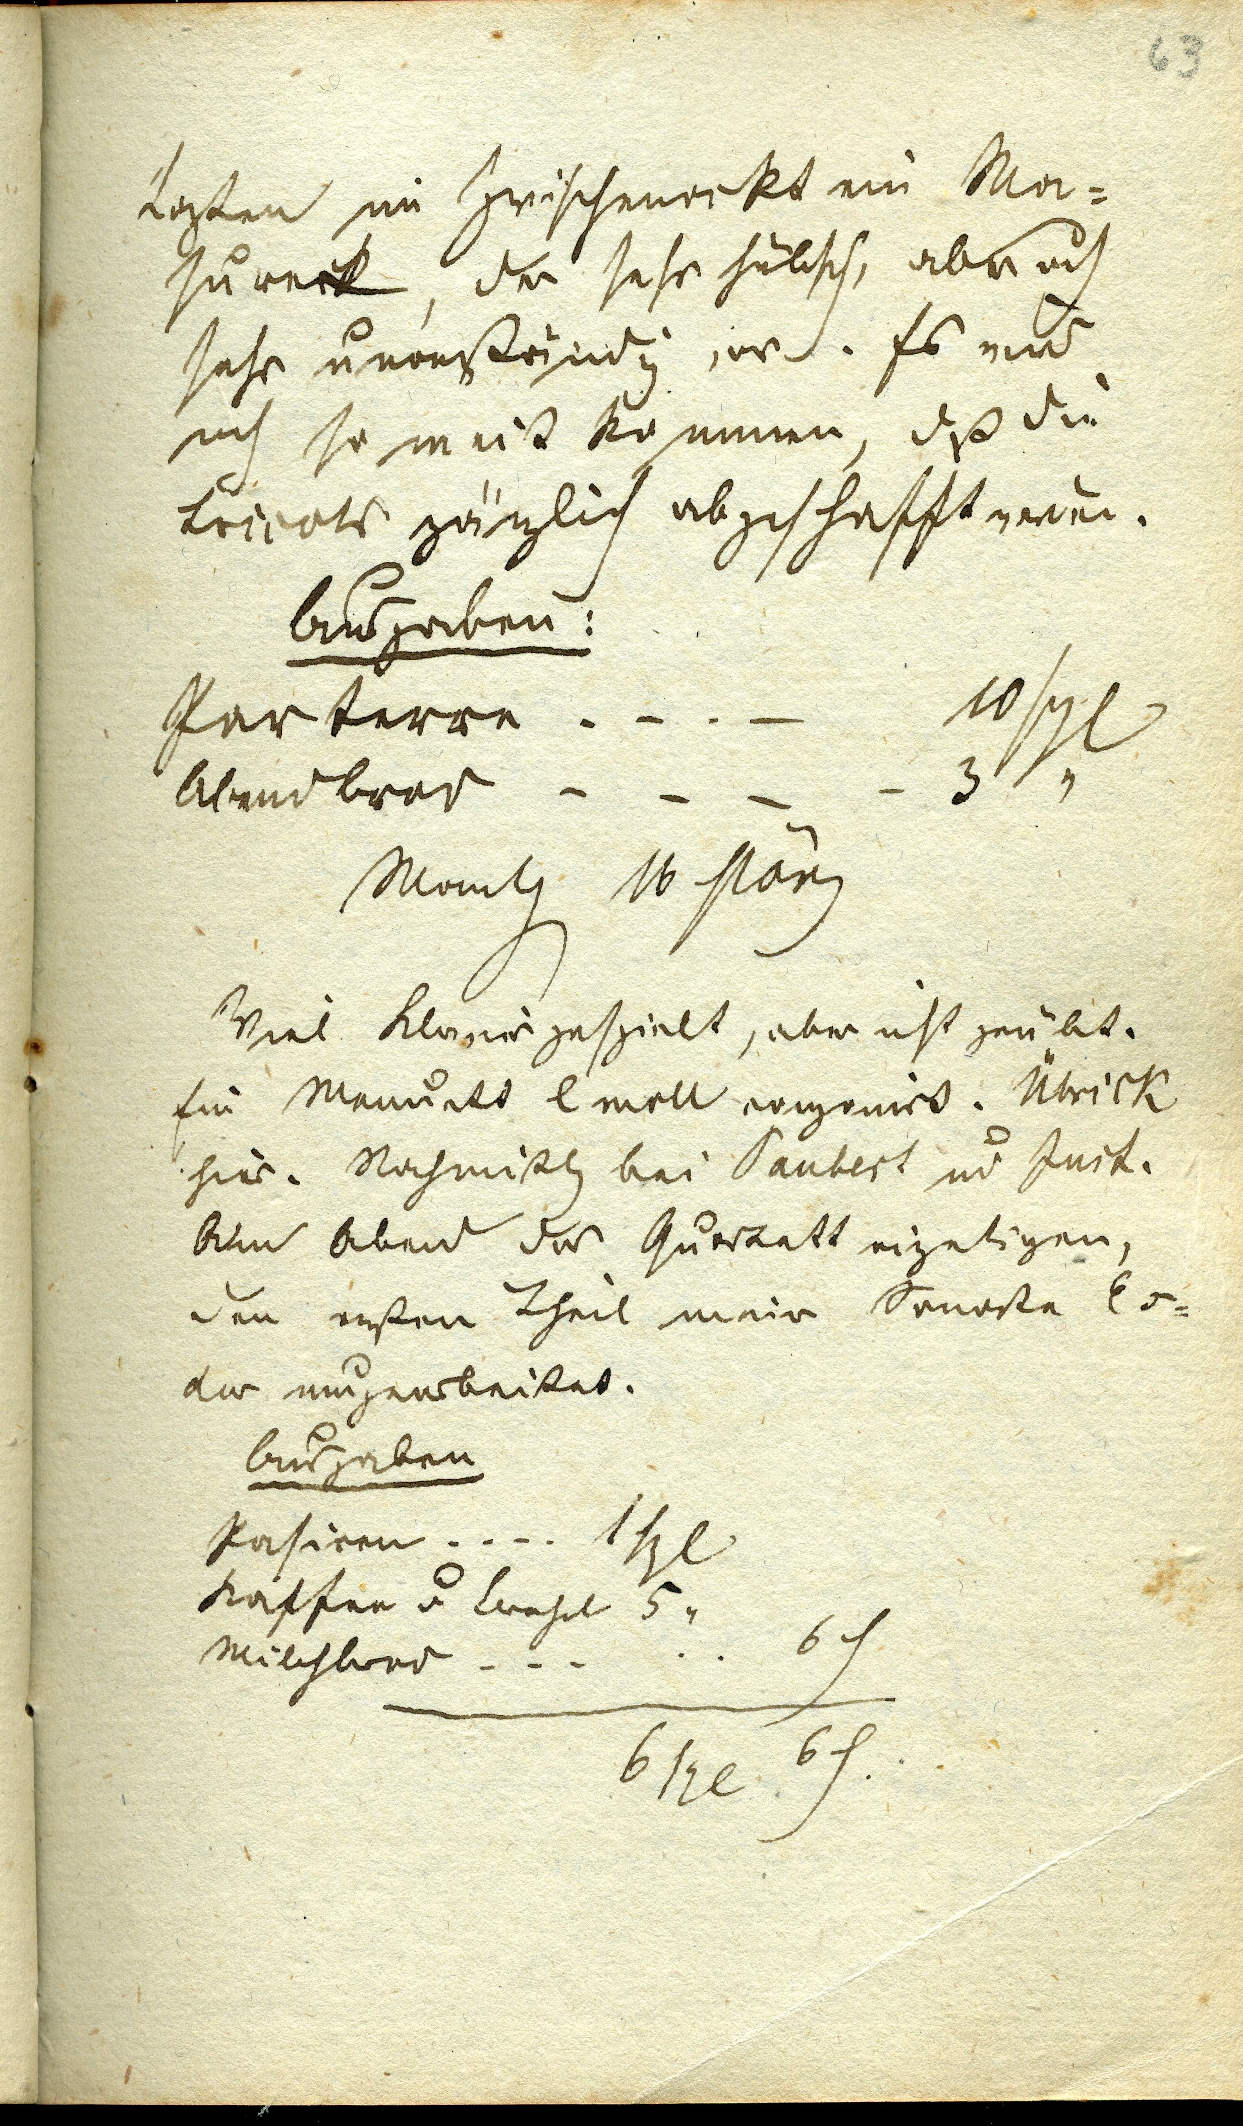 63
tanzten im Zwischenackt ein Ma=
sureck, der sehr hübsch, aber auch
sehr unanständig war. Es wird
noch so weit kommen, daß die
Tricots gänzlich abgeschafft werden.
Ausgaben:
Parterre . – . – 10 sgl
Abendbrod – – – – 3 "
Montg 16 März
Viel Klavier gespielt, aber nicht geübt.
Ein Menuett E moll componirt. Ubrick
hier. Nachmittg bei Taubert und Just.
Am Abend das Quartett
den ersten Theil meiner Sonate
dur umgearbeitet.
Ausgaben
Rasiren . . . . 1 sgl
Kaffee u 5 "
Milchbrod - - - . . 6 ₰
6 sgl 6 ₰.